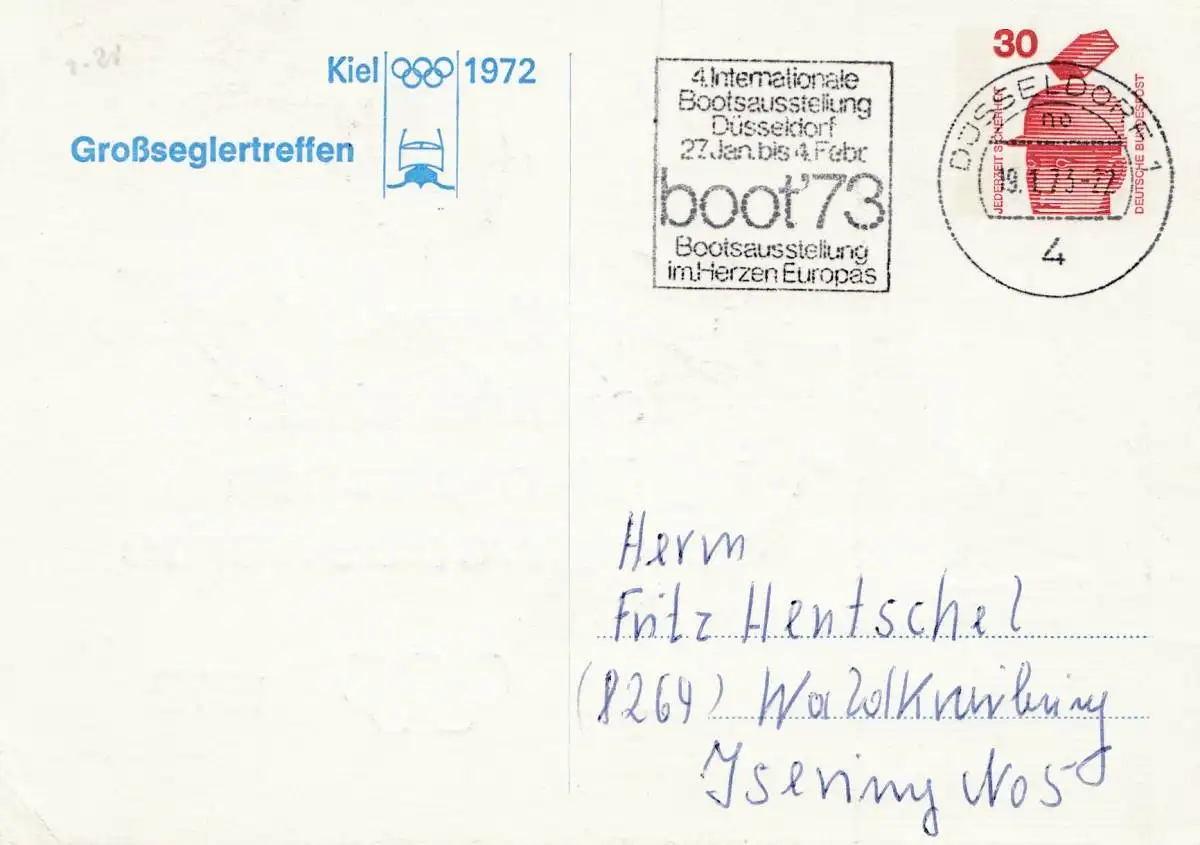 Kiel 1972
Großseglertreffen
4.Internationale
Bootsausstellung
Düsseldorf
27.Jan. bis 4.Febr.
boot'73
Bootsausstellung
im Herzen Europas
30
JEDERZEIT SICHERHEIT
DEUTSCHE BUNDESPOST
DÜSSELDORF 1
no
19.1.73-22
4
Herrn
Fritz Hentschel
(8264) Waldkraiburg
Isering No5